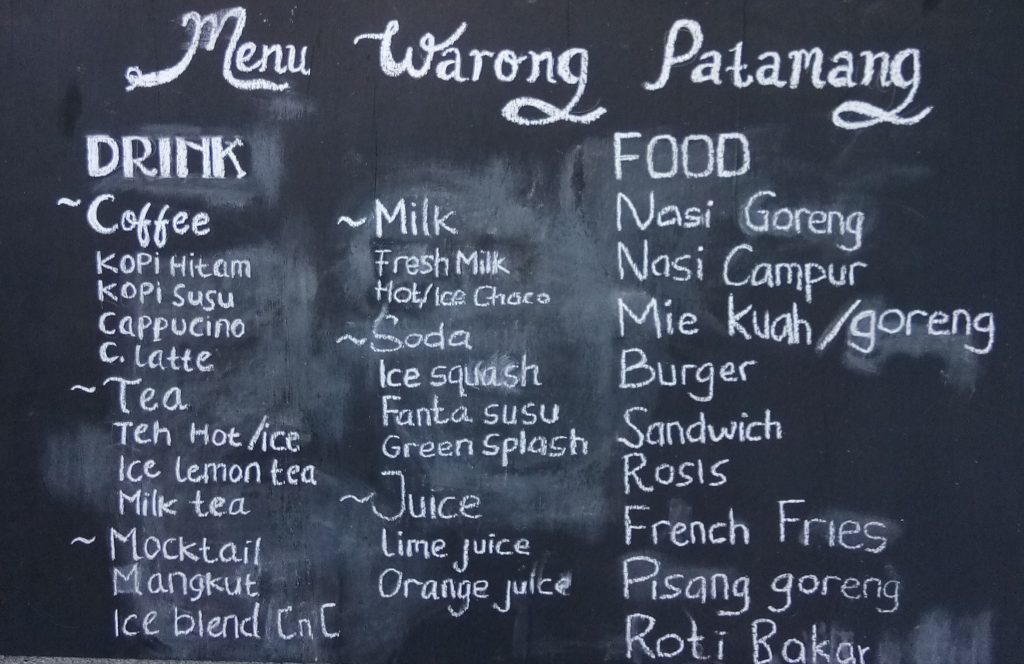 Menu Warong Patamang
DRINK
~Coffee
KOPI HITAM
KOPI SUSU
Cappucino
C. Latte
~Tea
Teh Hot/ice
Ice lemon tea
Milk tea
~Mocktail
Mangkut
Ice blend CnC
~Milk
Fresh Milk
Hot/Ice Choco
~Soda
Ice squash
Fanta susu
Green Splash
~Juice
Lime juice
Orange juice
FOOD
Nasi Goreng
Nasi Campur
Mie kuah/goreng
Burger
Sandwich
Rosis
French Fries
Pisang goreng
Roti Bakar